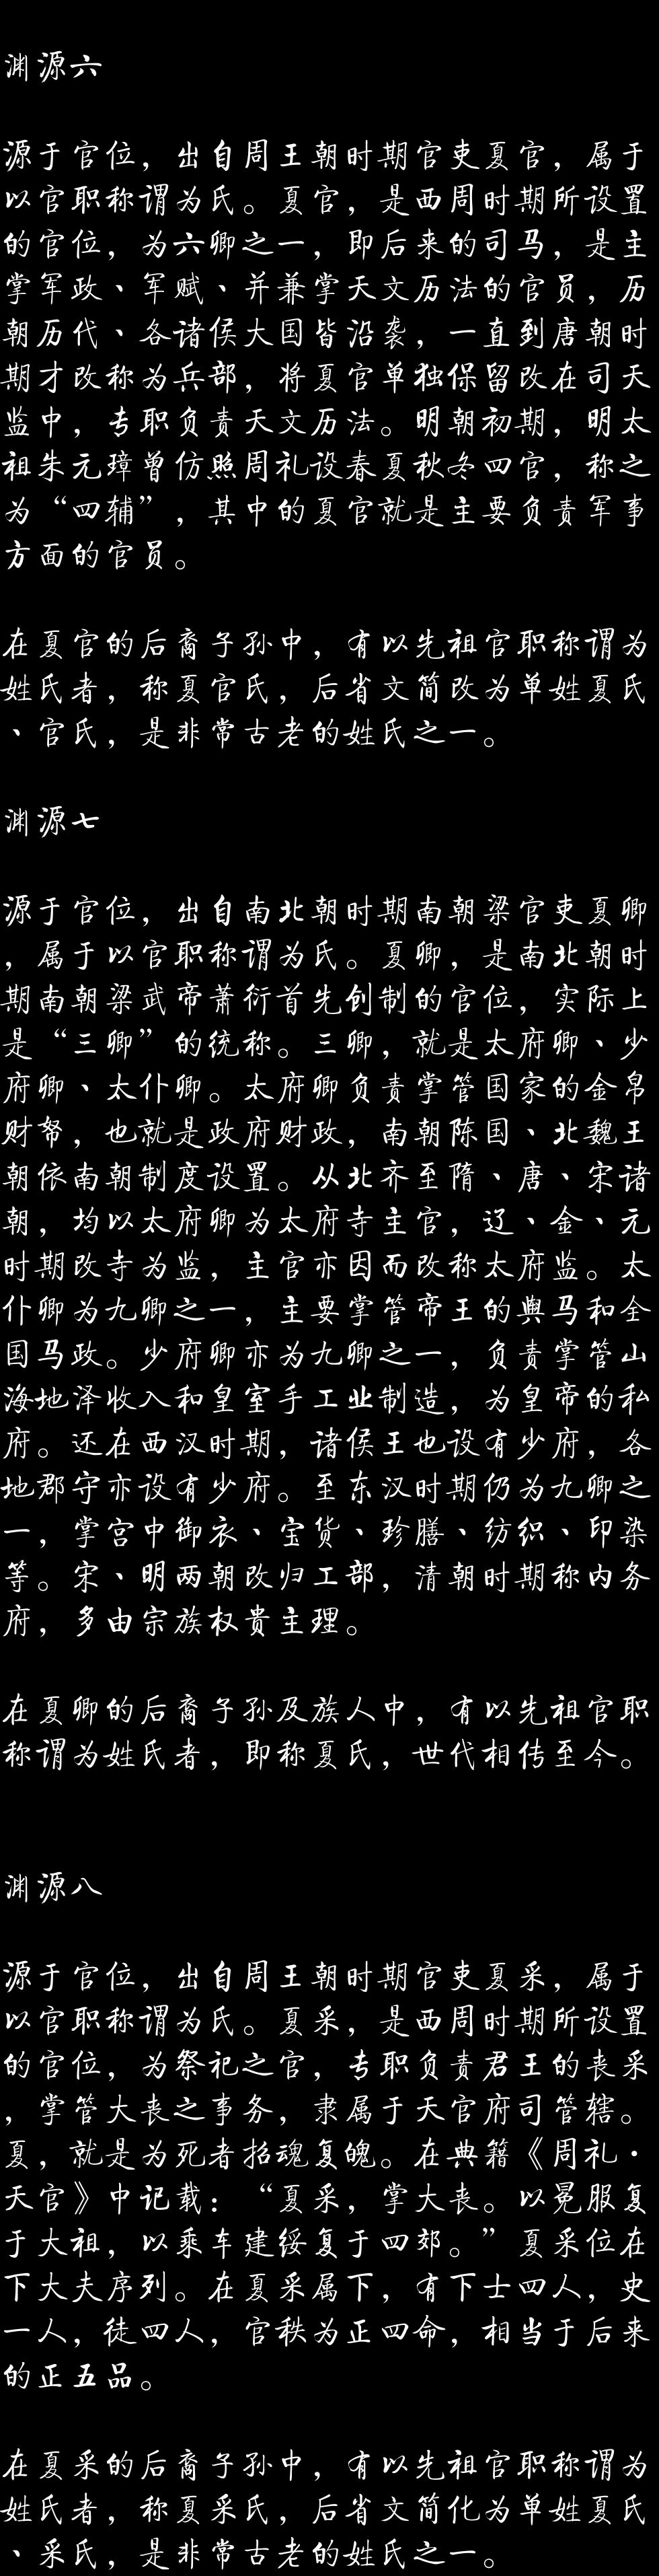 渊源六
源于官位，出自周王朝时期官吏夏官，属于
以官职称谓为氏。夏官，是西周时期所设置
的官位，为六卿之一，即后来的司马，是主
掌军政、军赋、并兼掌天文历法的官员，历
朝历代、各诸侯大国皆沿袭，一直到唐朝时
期才改称为兵部，将夏官单独保留改在司天
监中，专职负责天文历法。明朝初期，明太
祖朱元璋曾仿照周礼设春夏秋冬四官，称之
为“四辅”，其中的夏官就是主要负责军事
方面的官员。
在夏官的后裔子孙中，有以先祖官职称谓为
姓氏者，称夏官氏，后省文简改为单姓夏氏
、官氏，是非常古老的姓氏之一。
渊源七
源于官位，出自南北朝时期南朝梁官吏夏卿
，属于以官职称谓为氏。夏卿，是南北朝时
期南朝梁武帝萧衍首先创制的官位，实际上
是“三卿”的统称。三卿，就是太府卿、少
府卿、太仆卿。太府卿负责掌管国家的金帛
财帑，也就是政府财政，南朝陈国、北魏王
朝依南朝制度设置。从北齐至隋、唐、宋诸
朝，均以太府卿为太府寺主官，辽、金、元
时期改寺为监，主官亦因而改称太府监。太
仆卿为九卿之一，主要掌管帝王的舆马和全
国马政。少府卿亦为九卿之一，负责掌管山
海地泽收入和皇室手工业制造，为皇帝的私
府。还在西汉时期，诸侯王也设有少府，各
地郡守亦设有少府。至东汉时期仍为九卿之
一，掌宫中御衣、宝货、珍膳、纺织、印染
等。宋、明两朝改归工部，清朝时期称内务
府，多由宗族权贵主理。
在夏卿的后裔子孙及族人中，有以先祖官职
称谓为姓氏者，即称夏氏，世代相传至今。
渊源八
源于官位，出自周王朝时期官吏夏采，属于
以官职称谓为氏。夏采，是西周时期所设置
的官位，为祭祀之官，专职负责君王的丧采
，掌管大丧之事务，隶属于天官府司管辖。
夏，就是为死者招魂复魄。在典籍《周礼·
天官》中记载：“夏采，掌大丧。以冕服复
于大祖，以乘车建绥复于四郊。”夏采位在
下大夫序列。在夏采属下，有下士四人，史
一人，徒四人，官秩为正四命，相当于后来
的正五品。
在夏采的后裔子孙中，有以先祖官职称谓为
姓氏者，称夏采氏，后省文简化为单姓夏氏
、采氏，是非常古老的姓氏之一。